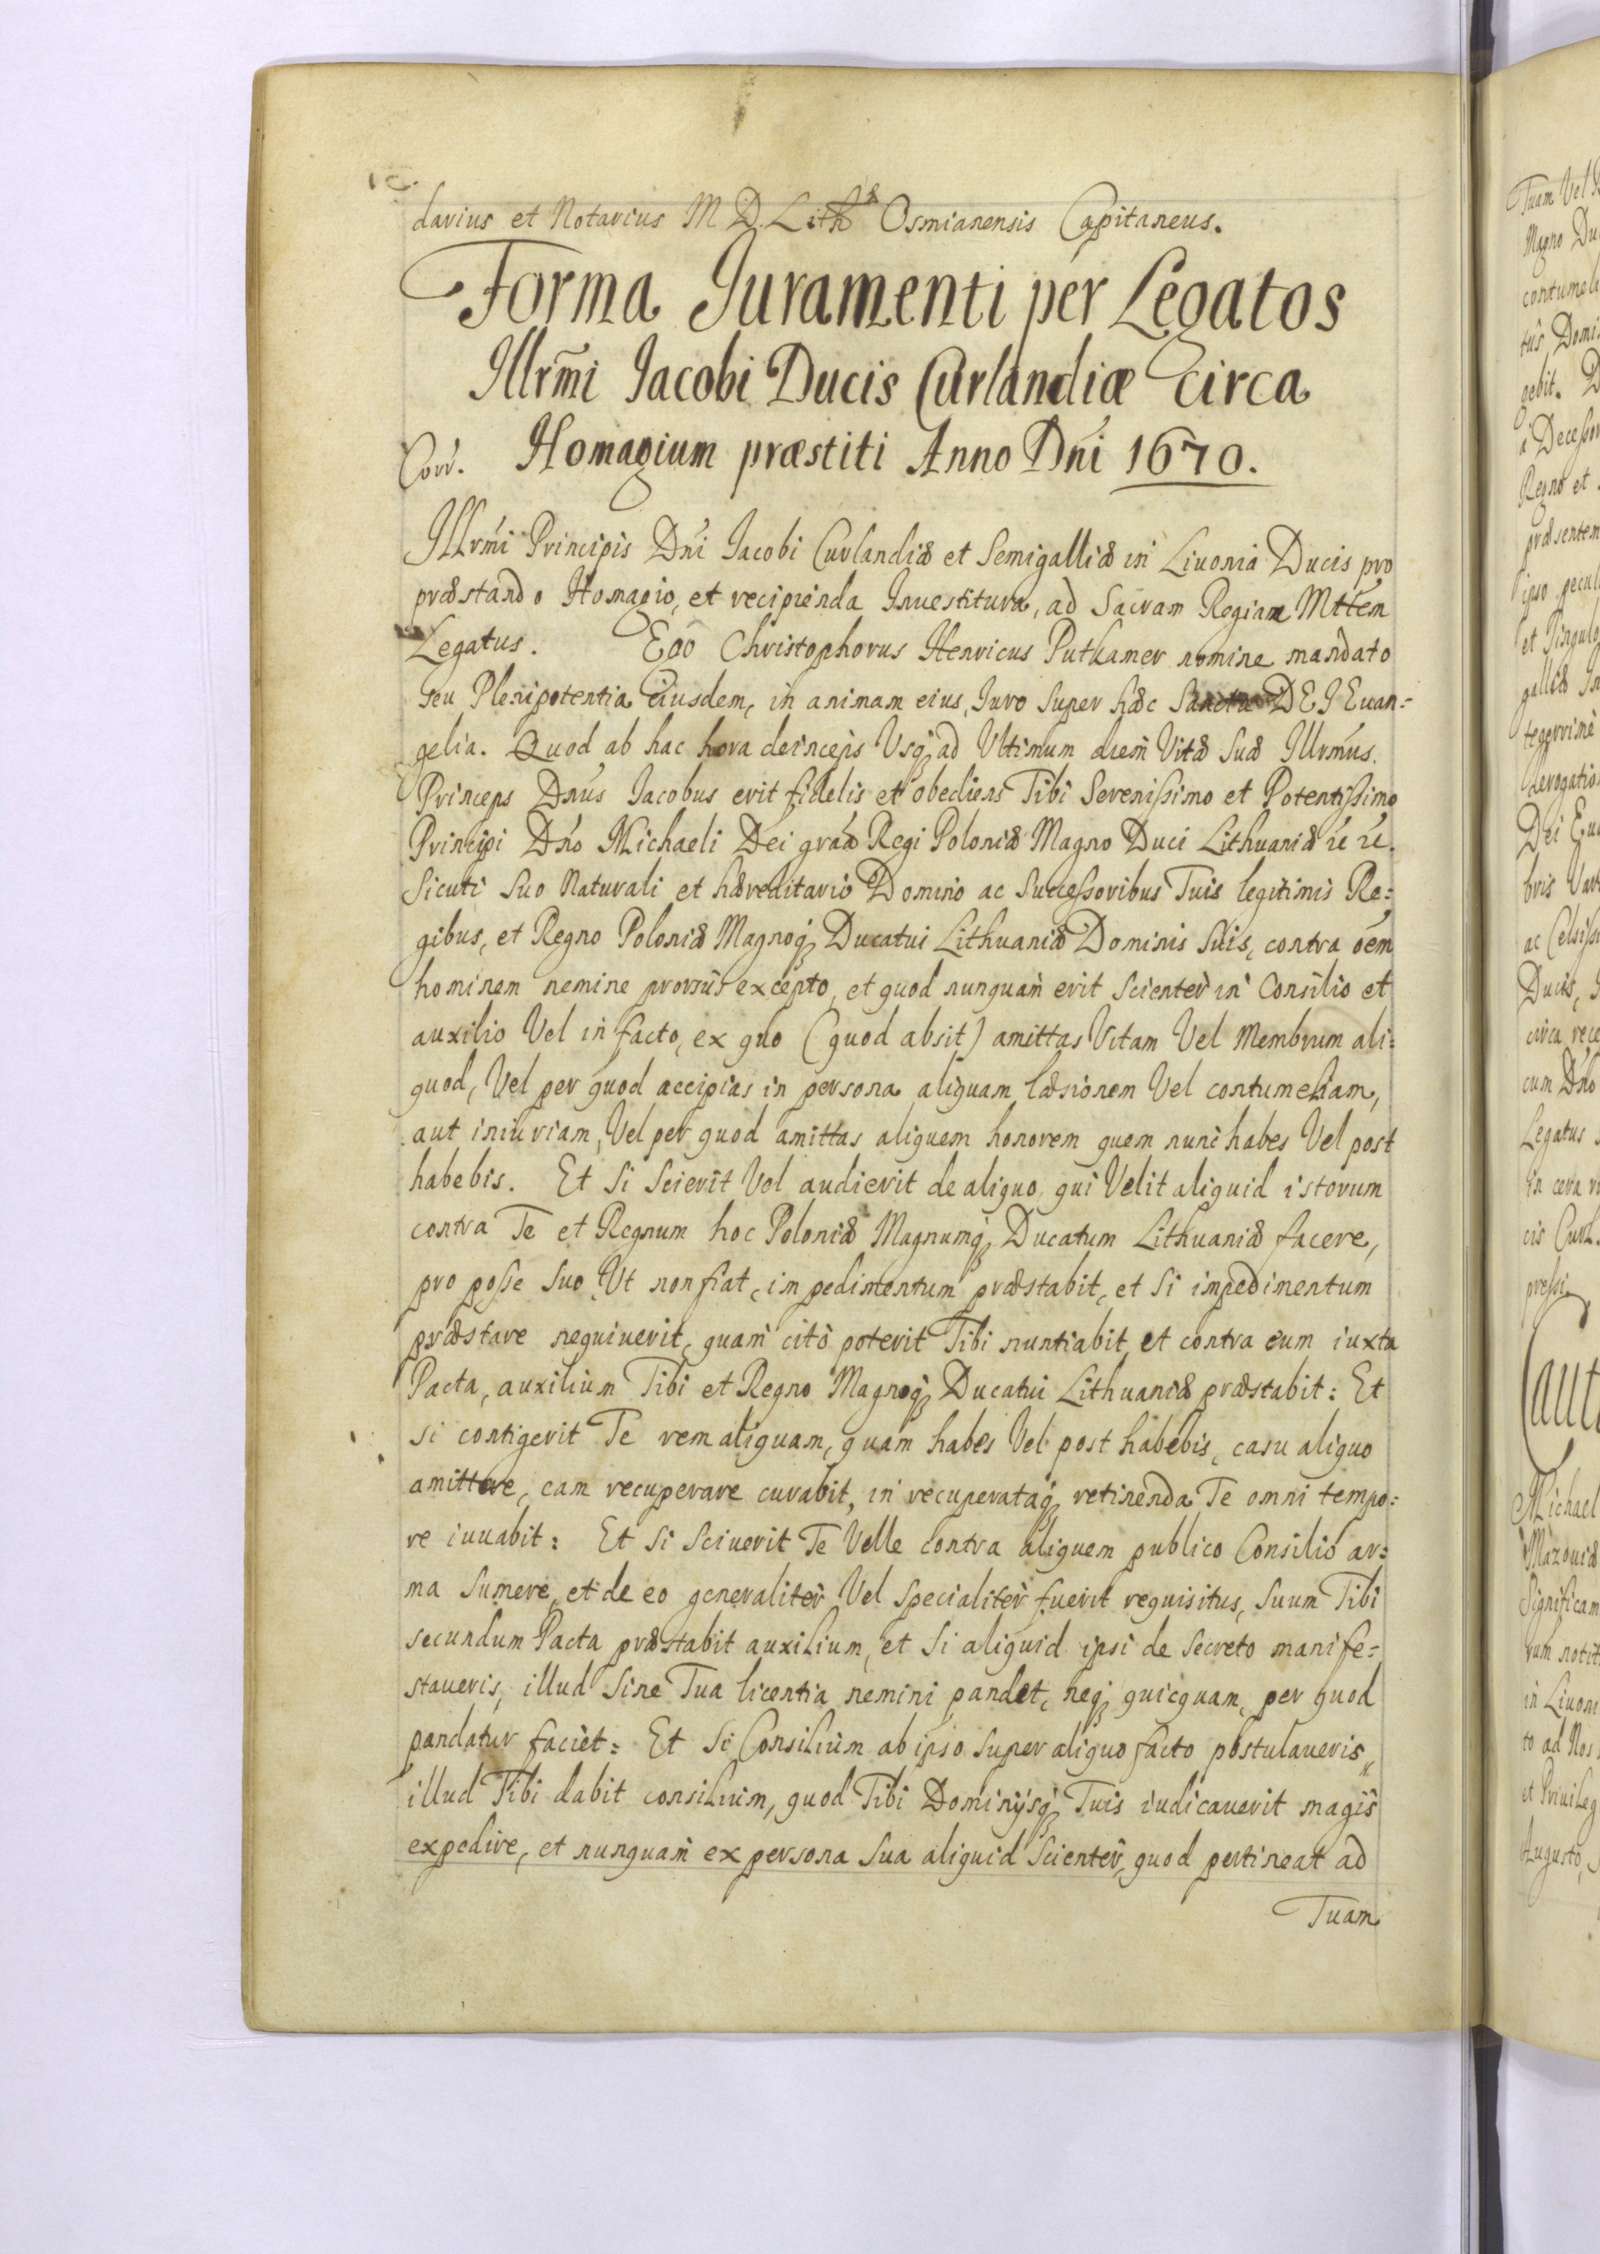 darius et Notarius M. D. Lithæ Osmianensis Capitaneus.
Forma Iuramenti per Legatos
Illrm̃i Iacobi Ducis Curlandiæ circa
Corr. Homagium præstiti Anno Dn̄i 1670.
Illrm̃i Principis Dn̄i Iacobi Curlandiæ et Semigalliæ in Livonia Ducis pro
præstando Homagio, et recipienda Inuestitura, ad Sacram Regiam Mttem
Legatus. Ego Christophorus Henricus Putkamer nomine mandato
seu Plenipotentia eiusdem, in animam eius, Iuro super hæc Sancta DEI Euan=
gelia. Quod ab hac hora deinceps Usq; ad Ultimum diem Vitæ Suæ Illrm̃us.
Princeps Dn̄us Iacobus erit fidelis et obediens Tibi Serenissimo et Potentissimo
Principi Dn̄o Michaeli Dei grãa Regi Poloniæ Magno Duci Lithuaniæ
Sicuti Suo Naturali et hæreditario Domino ac Successoribus Tuis legitimis Re=
gibus, et Regno Poloniæ Magnoq; Ducatui Lithuaniæ Dominis Suis, contra oẽm
hominem nemine prorsus excepto, et quod nunquam erit Scienter in Consilio et
auxilio Vel in facto, ex quo (quod absit) amittas Vitam Vel Membrum ali=
quod, Vel per quod accipias in persona aliquam læsionem Vel contumeliam,
aut iniuriam, Vel per quod amittas aliquem honorem quem nunc habes Vel post
habebis. Et Si Scierit Vel audierit de aliquo, qui Velit aliquid istorum
contra Te et Regnum hoc Poloniæ Magnumq; Ducatum Lithuaniæ facere,
pro posse Suo Ut non fiat, impedimentum præstabit, et Si impedimentum
præstare nequiuerit, quam citò poterit Tibi nuntiabit, et contra eum iuxta
Pacta, auxilium Tibi et Regno Magnoq; Ducatui Lithuaniæ præstabit: Et
si contigerit Te rem aliquam, quam habes Vel post habebis, casu aliquo
amittere, eam recuperare curabit, in recuperataq; retinenda Te omni tempo=
re iuuabit: Et Si Sciuerit Te Velle contra aliquem publico Consilio ar=
ma Sumere, et de eo generaliter Vel Specialiter fuerit requisitus, Suum Tibi
secundum Pacta præstabit auxilium, et Si aliquid ipsi de Secreto manife=
staueris, illud Sine Tua licentia nemini pandet, neq; quicquam, per quod
pandatur faciet: Et Si Consilium ab ipso Super aliquo facto postulaueris,
illud Tibi dabit consilium, quod Tibi Dominijsq; Tuis iudicauerit magis
expedire, et nunquam ex persona Sua aliquid Scienter, quod pertineat ad
Tuam
Tuam Vel
Magno Du
contumeli
tus Domi
gebit. D
à Decessor
Regno et
præsentem
ipso pecul
et Singulo
galliæ In
tegerrime
derogatio
Dei Eu
bris Var
ac Celsiss
Ducis, I
circa rece
cum Dn̄o
Legatus
in cera r
cis Curl.
pressi.
Caut
Michael
Mazouiæ
Significam
rum notit
in Liuoni
to ad Nos
et Priuileg
Augusto,